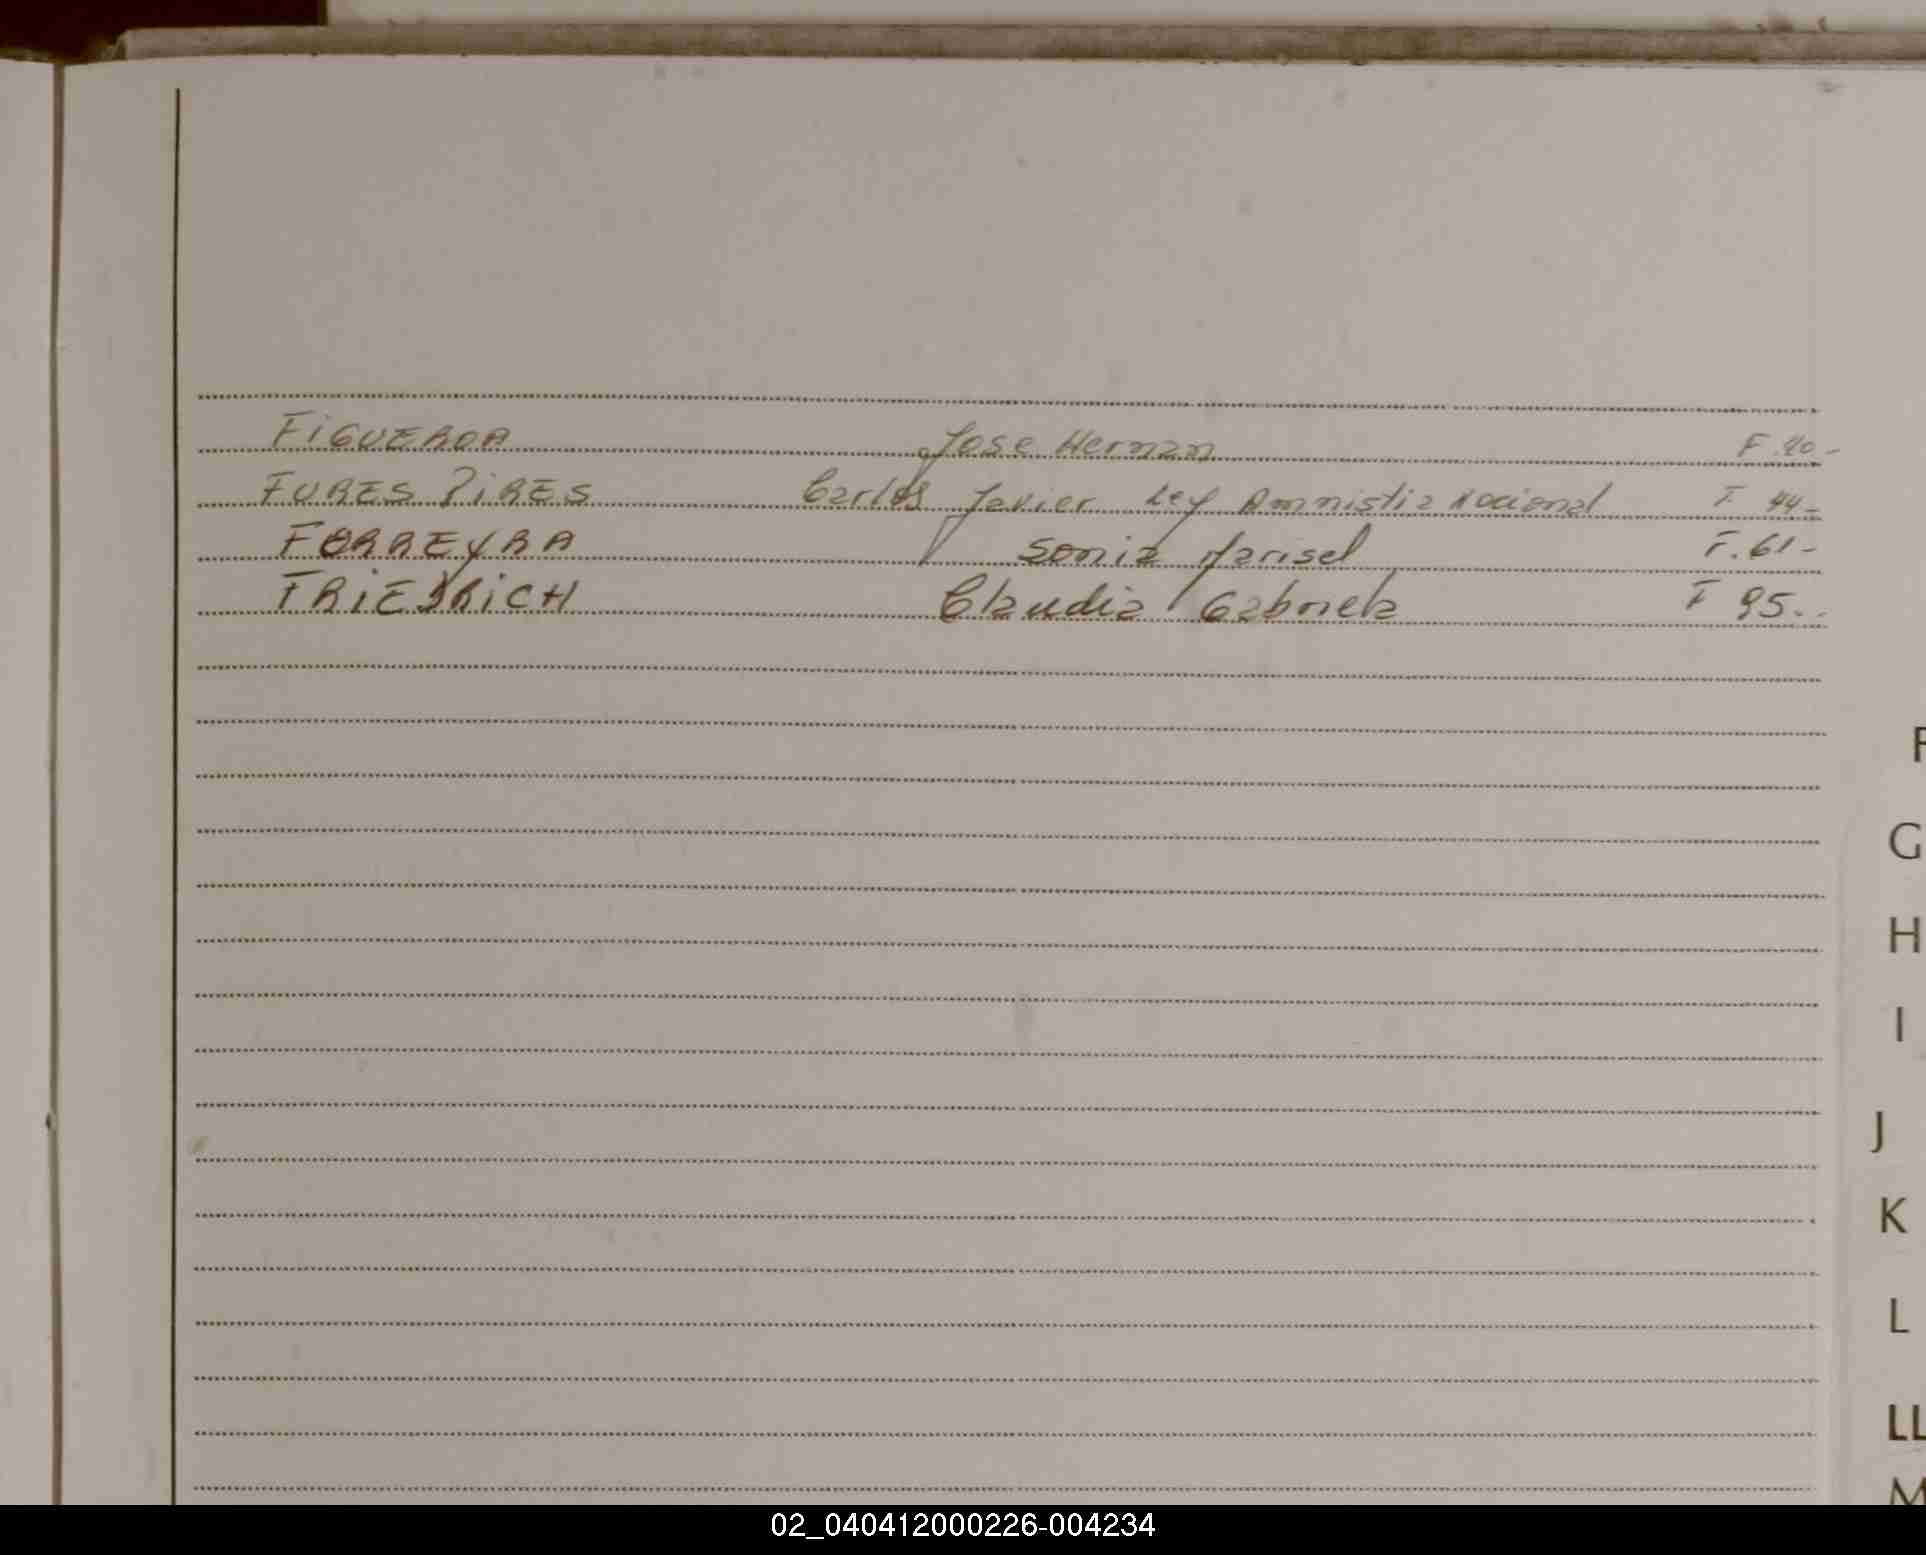 FiGUEROA Jose Hernan F. 40-
FURES PiRES Carlos Javier Ley Amnistia Nacional F 44-
FERREYRA Sonia Marisel F. 61-
FRiEDRiCH Claudia Gabriela F 95..
F
G
H
I
J
K
L
LL
M
02_040412000226-004234